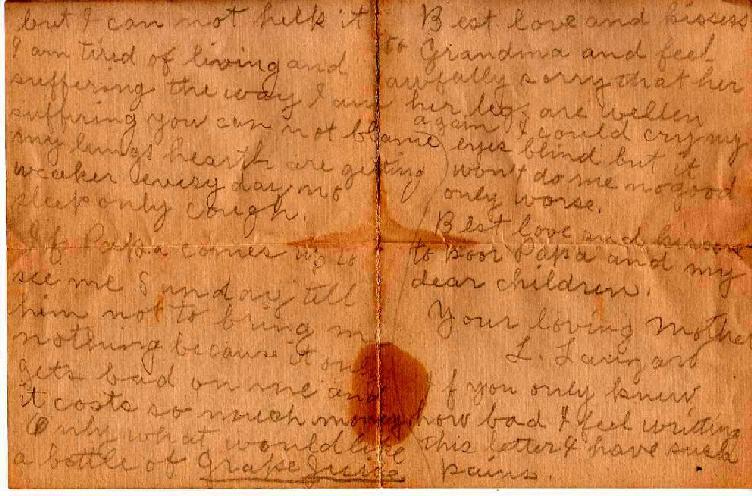 but I can not helk it
I am tired of living and
suffering the way I am
suffering you can not blame
my lungs hearth are getting
weaker every day no
sleep only cough.
If Papa comes up to
see me Sunday tell
him not to bring me
nothing because it only
gets bad on me and
it costs so much money
Only what would like
a bottle of Grape Juice
Best love and kisses
to Grandma and feel
awfully sorry that her
her legs are wellen
again I could cry my
eyes blind but it
won't do me no good
only worse.
Best love and kisses
to poor Papa and my
dear children.
Your loving mother
L.
If you only knew
how bad I feel writing
this letter I have such
pains.